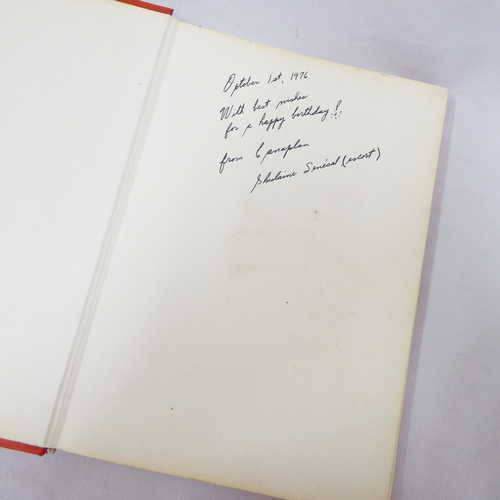 October 1st, 1976
With best wishes
for a happy birthday!!
from Canaplan
Ghislaine Sénécal (escort)